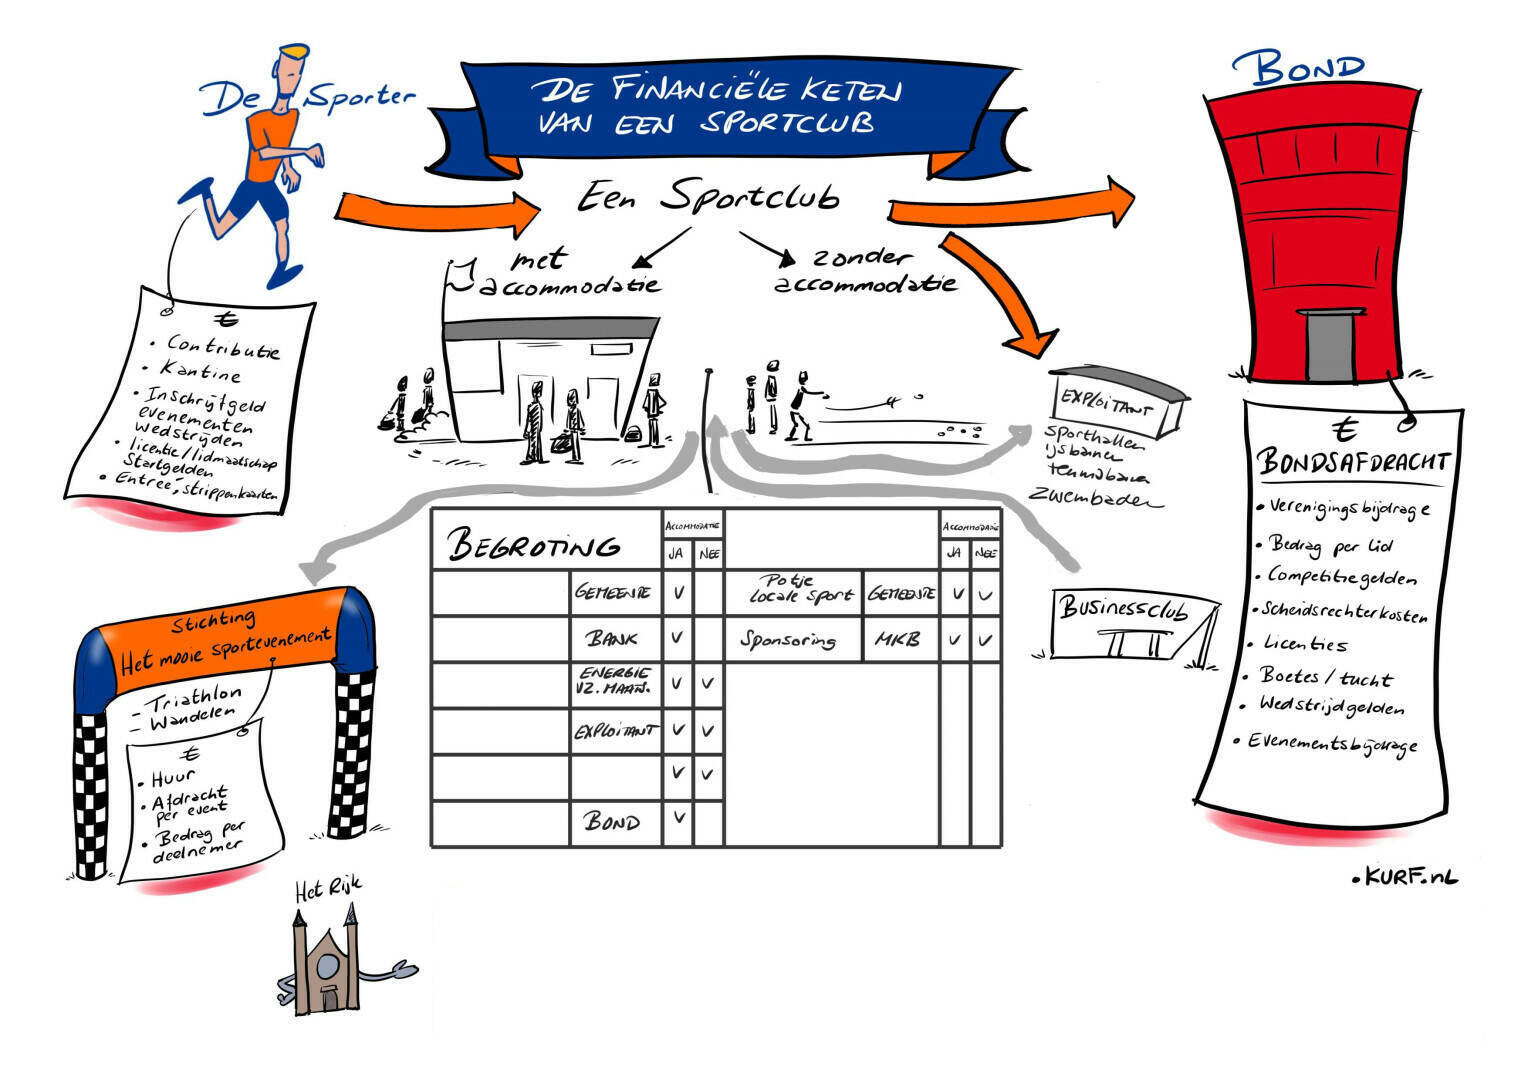 DE FINANCIËLE KETEN
VAN EEN SPORTCLUB
De Sporter
BOND
Een Sportclub
met
accommodatie
zonder
accommodatie
€
• Contributie
• Kantine
• Inschrijfgeld
evenementen
wedstrijden
• licentie/lidmaatschap
Startgelden
• Entree, strippenkaarten
EXPLOITANT
Sporthallen
ijsbanen
tennisbanen
zwembaden
€
BONDSAFDRACHT
• Verenigingsbijdrage
• Bedrag per lid
• Competitiegelden
• Scheidsrechterkosten
• Licenties
• Boetes/tucht
• Wedstrijdgelden
• Evenementsbijdrage
BEGROTING
ACCOMMODATIE
JA NEE
ACCOMMODATIE
JA NEE
GEMEENTE V
Potje
locale sport GEMEENTE V V
BANK V
Sponsoring MKB V V
ENERGIE
VZ. MAAN. V V
EXPLOITANT V V
V V
BOND V
Businessclub
Stichting
Het mooie sportevenement
– Triathlon
– Wandelen
€
• Huur
• Afdracht
per event
• Bedrag per
deelnemer
Het Rijk
•KURF.nL